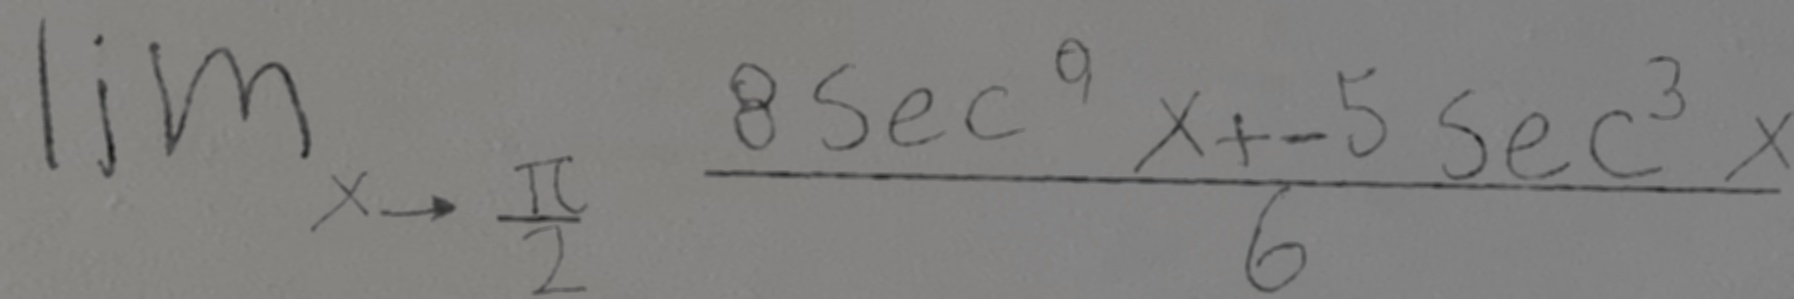 \lim_{x \to \frac{\pi}{2}} \frac{8 \sec^9 x + -5 \sec^3 x}{6}